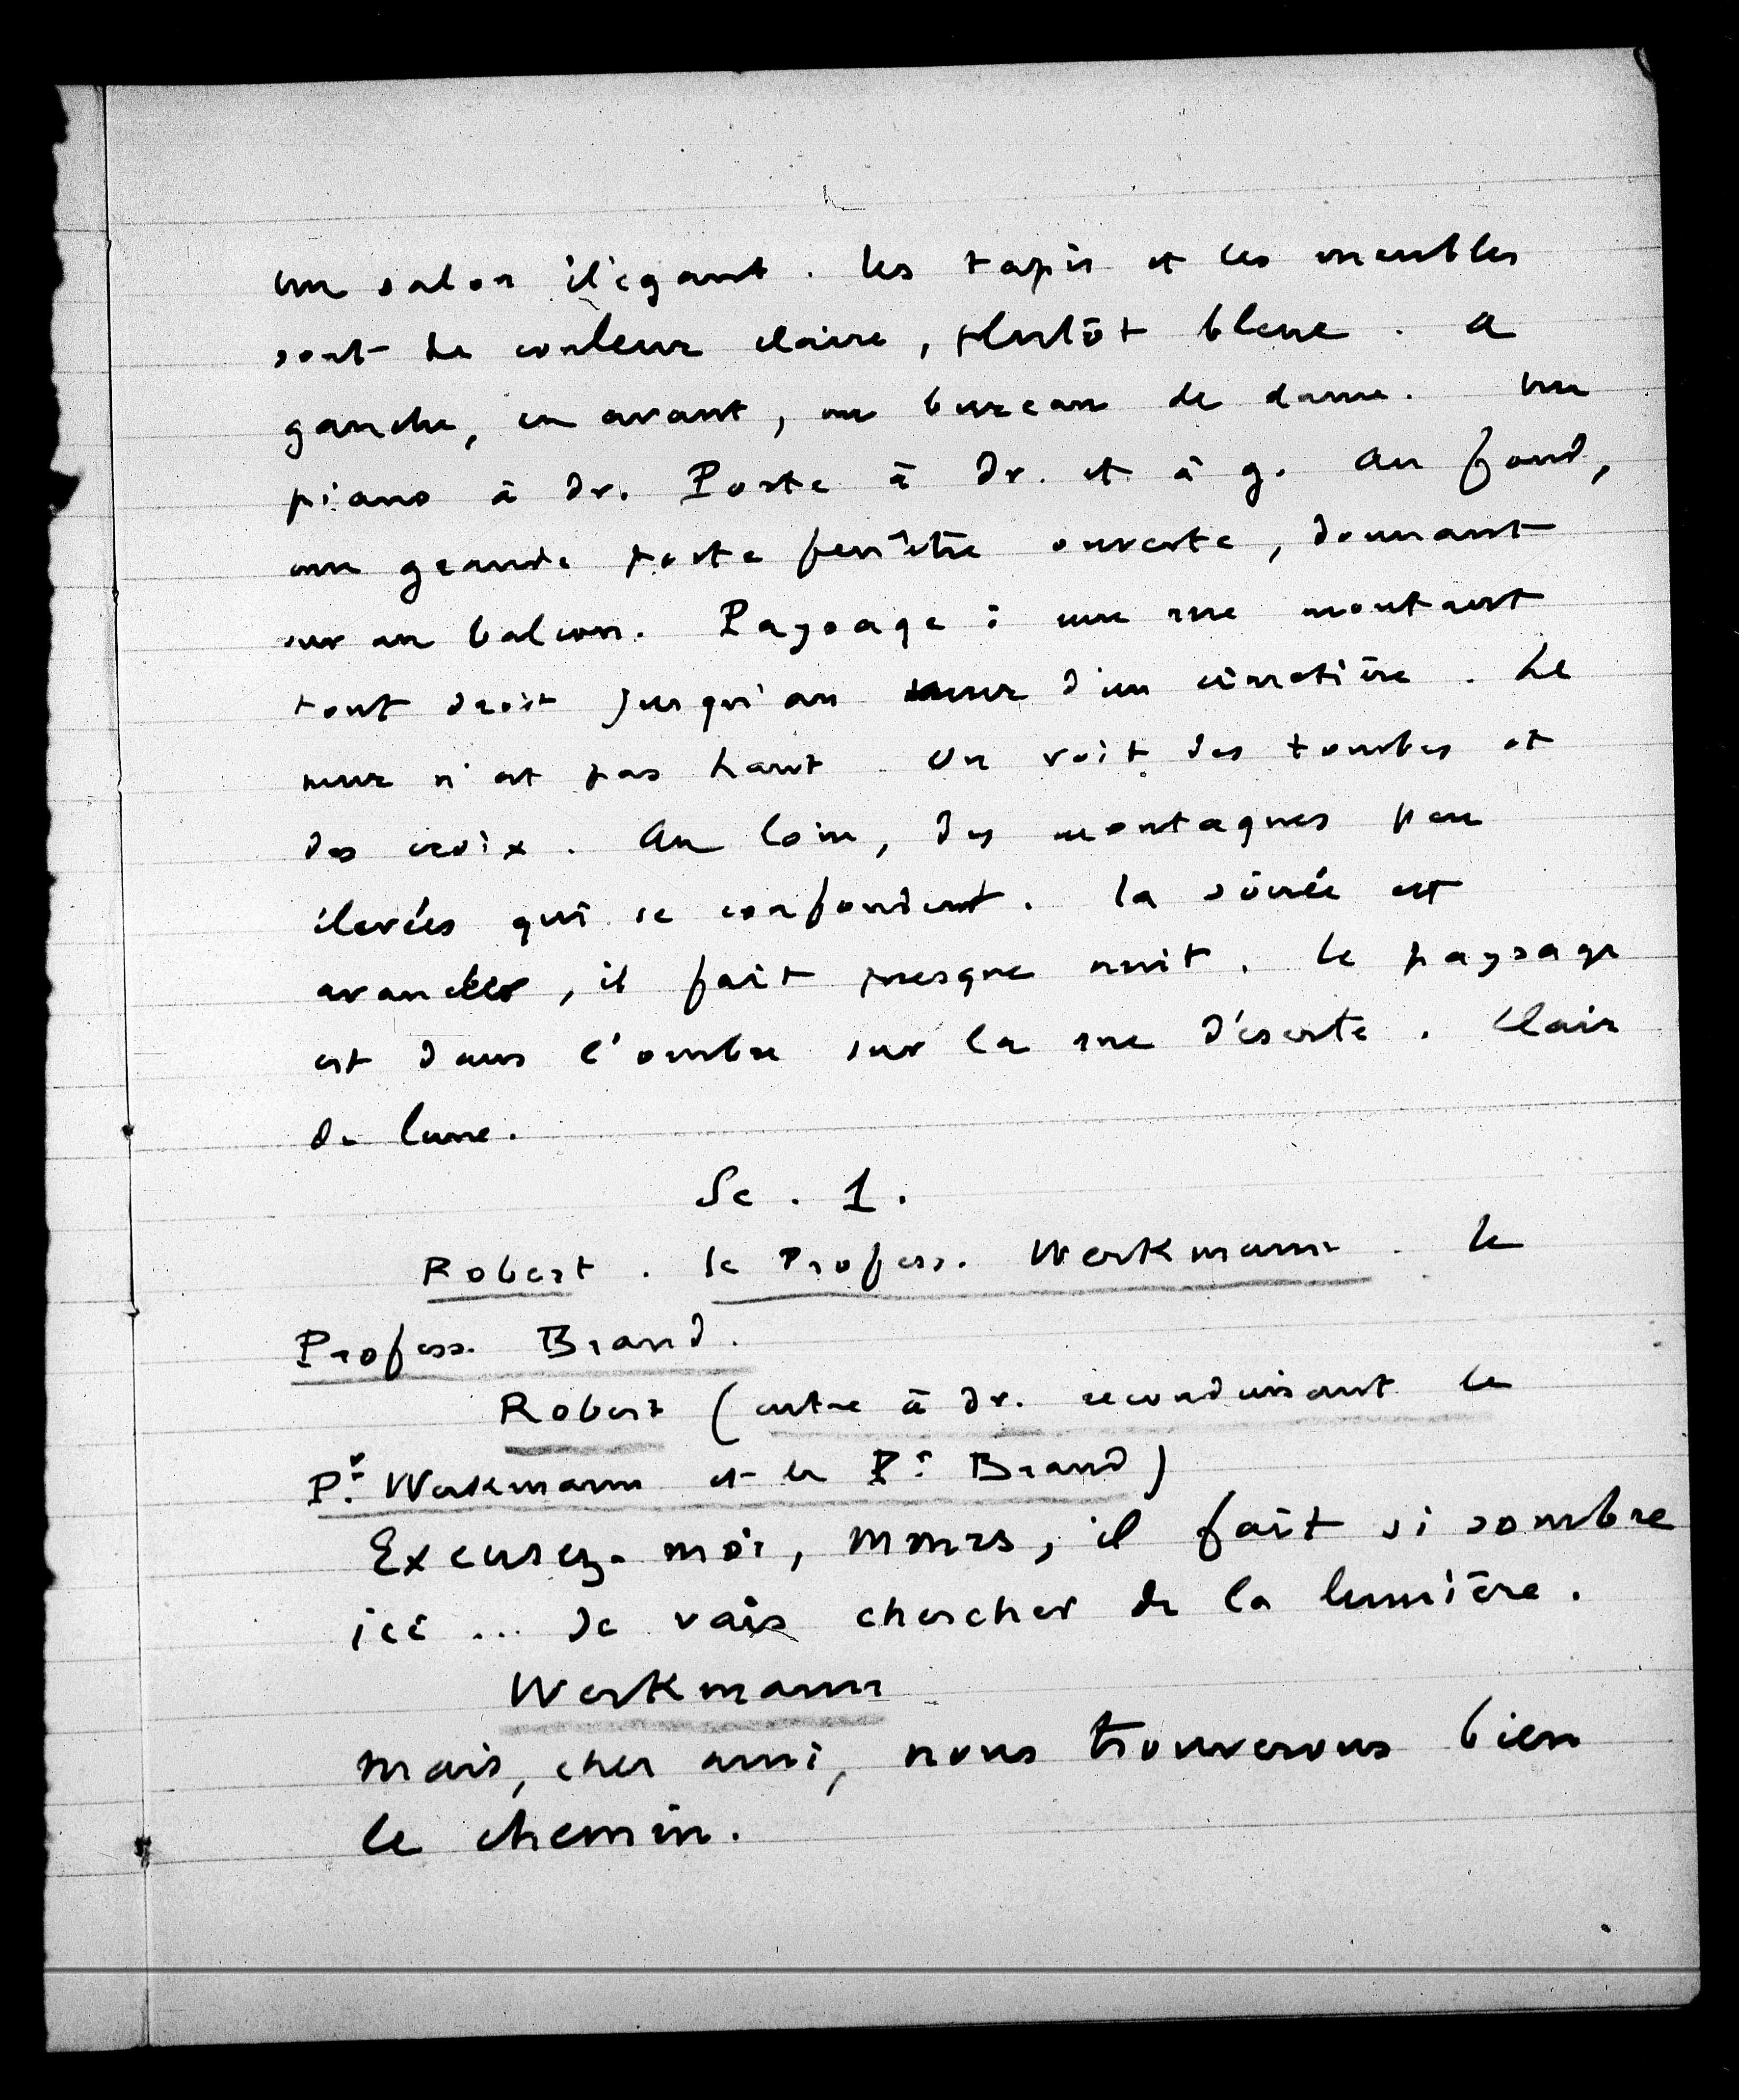 Un salon élégant. Les tapis et les meubles
sont de couleur claire, plutôt bleue. A
gauche, en avant, un bureau de dame. Un
piano à dr. Porte à dr. et à g. Au fond,
une grande porte fenêtre ouverte, donnant
sur un balcon. Paysage : une rue montant
tout droit jusqu'au mur d'un cimetière. Le
mur n'est pas haut. On voit des tombes et
des croix. Au loin, des montagnes peu
élevées qui se confondent. La soirée est
avancée, il fait presque nuit. Le paysage
est dans l'ombre sur la rue déserte. Clair
de lune.
Sc. 1.
Robert. Le Profess. Werkmann. Le
Profess. Brand.
Robert (entre à dr. reconduisant le
Pr. Werkmann et le Pr. Brand)
Excusez-moi, Mmrs, il fait si sombre
ici ... Je vais chercher de la lumière.
Werkmann
Mais, cher ami, nous trouverons bien
le chemin.